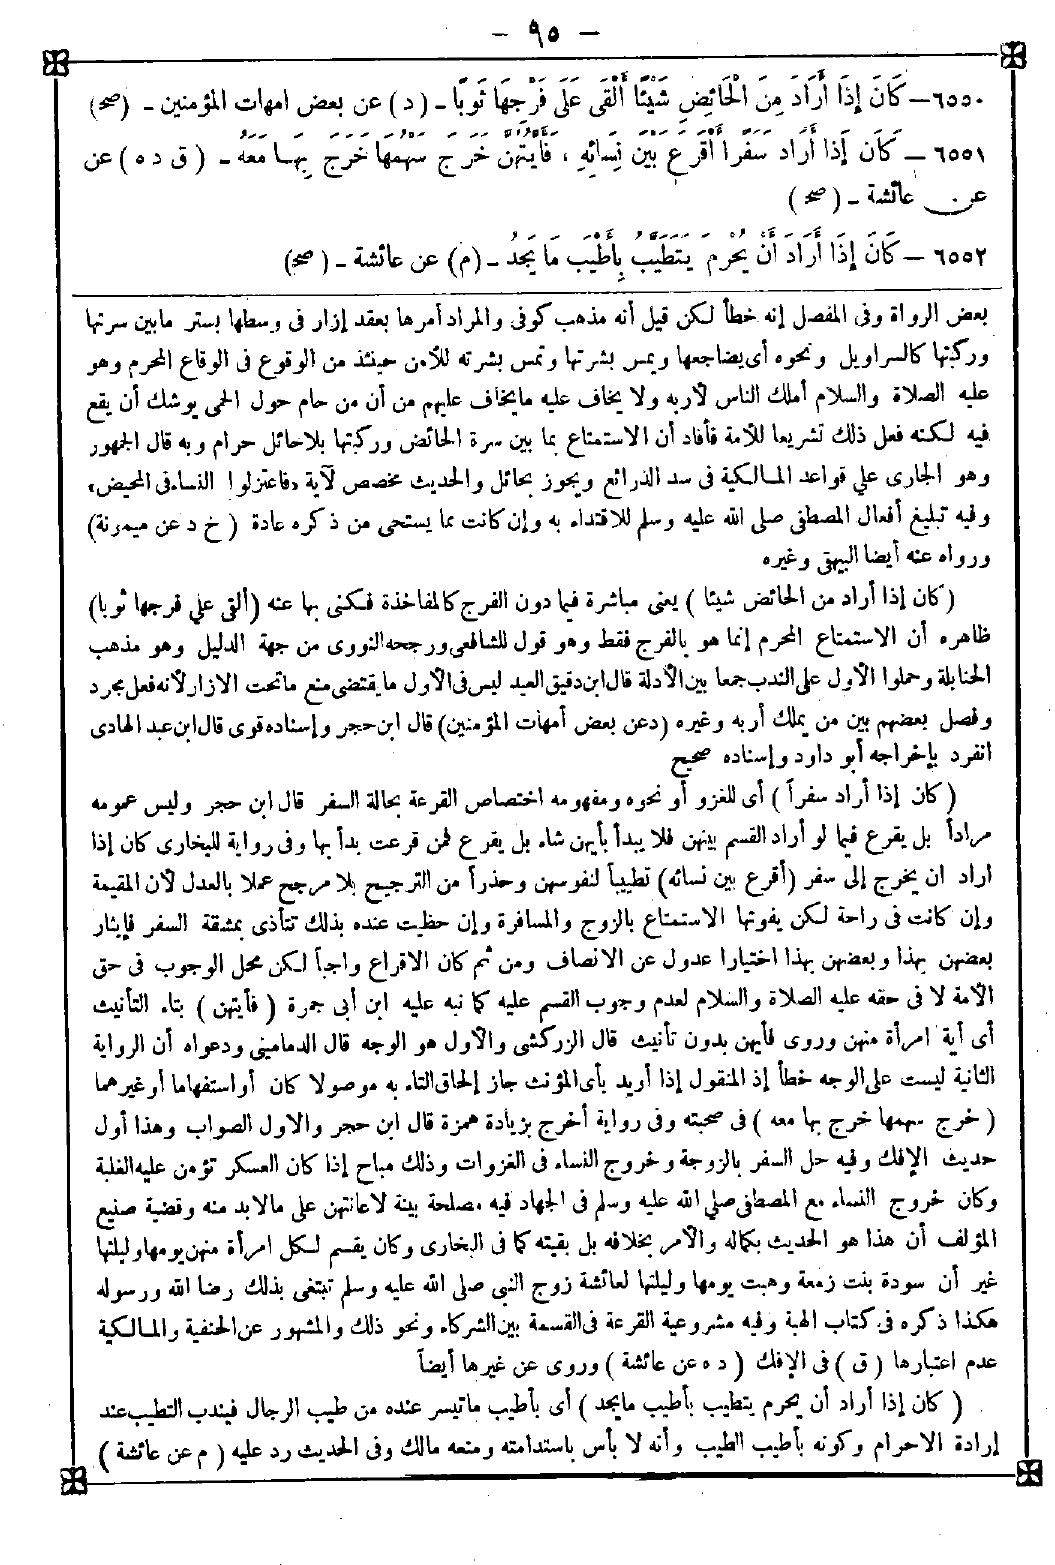 - ٩٥ -
٦٥٥٠ – كَانَ إِذَا أَرَادَ مِنَ الْحَائِضِ شَيْئًا أَلْقَى عَلَى فَرْجِهَا ثَوْبًا - (د) عن بعض امهات المؤمنين - (صح)
٦٥٥١ – كَانَ إِذَا أَرَادَ سَفَرًا أَقْرَعَ بَيْنَ نِسَائِهِ ، فَأَيَّتُهُنَّ خَرَجَ سَهْمُهَا خَرَجَ بِهَا مَعَهُ - ( ق د ه ) عن
عن عائشة - ( صح )
٦٥٥٢ – كَانَ إِذَا أَرَادَ أَنْ يُحْرِمَ يَتَطَيَّبُ بِأَطْيَبِ مَا يَجِدُ - (م) عن عائشة - (صح)
بعض الرواة وفى المفصل إنه خطأ لكن قيل أنه مذهب كوفى والمراد أمرها بعقد إزار فى وسطها يستر مابين سرتها
وركبتها كالسراويل ونحوه أى يضاجعها ويمس بشرتها وتمس بشرته للأمن حينئذ من الوقوع فى الوقاع المحرم وهو
عليه الصلاة والسلام أملك الناس لأربه ولا يخاف عليه مايخاف عليهم من أن من حام حول الحمى يوشك أن يقع
فيه لكنه فعل ذلك تشريعا للأمة فأفاد أن الاستمتاع بما بين سرة الحائض وركبتها بلاحائل حرام وبه قال الجمهور
وهو الجارى على قواعد المالكية فى سد الذرائع ويجوز بحائل والحديث مخصص لآية «فاعتزلوا النساء فى المحيض»
وفيه تبليغ أفعال المصطفى صلى الله عليه وسلم للاقتداء به وإن كانت مما يستحى من ذكره عادة ( خ د عن ميمونة)
ورواه عنه أيضا البيهقى وغيره
( كان إذا أراد من الحائض شيئا ) يعنى مباشرة فيما دون الفرج كالمفاخذة فكنى بها عنه (ألقى على فرجها ثوبا)
ظاهره أن الاستمتاع المحرم إنما هو بالفرج فقط وهو قول للشافعى ورجحه النووى من جهة الدليل وهو مذهب
الحنابلة وحملوا الأول على الندب جمعا بين الأدلة قال ابن دقيق العيد ليس فى الأول مايقتضى منع ماتحت الازار لأنه فعل مجرد
وفصل بعضهم بين من يملك أربه وغيره (دعن بعض أمهات المؤمنين) قال ابن حجر وإسناده قوى قال ابن عبد الهادى
انفرد بإخراجه أبو داود وإسناده صحيح
( كان إذا أراد سفراً ) أى للغزو أو نحوه ومفهومه اختصاص القرعة بحالة السفر قال ابن حجر وليس عمومه
مراداً بل يقرع فيما لو أراد القسم بينهن فلا يبدأ بأيهن شاء بل يقرع فمن قرعت بدأ بها وفى رواية للبخارى كان إذا
اراد ان يخرج إلى سفر (أقرع بين نسائه) تطييباً لنفوسهن وحذراً من الترجيح بلا مرجح عملا بالعدل لأن المقيمة
وإن كانت فى راحة لكن يفوتها الاستمتاع بالزوج والمسافرة وإن حظيت عنده بذلك تتأذى بمشقة السفر فإيثار
بعضهن بهذا وبعضهن بهذا اختيارا عدول عن الانصاف ومن ثم كان الاقراع واجباً لكن محل الوجوب فى حق
الأمة لا فى حقه عليه الصلاة والسلام لعدم وجوب القسم عليه كما نبه عليه ابن أبى جمرة ( فأيتهن ) بتاء التأنيث
أى أية امرأة منهن وروى فأيهن بدون تأنيث قال الزركشى والأول هو الوجه قال الدمامينى ودعواه أن الرواية
الثانية ليست على الوجه خطأ إذ المنقول إذا أريد بأى المؤنث جاز إلحاق التاء به موصولا كان أو استفهاما أو غيرهما
( خرج سهمها خرج بها معه ) فى صحبته وفى رواية أخرج بزيادة همزة قال ابن حجر والاول الصواب وهذا أول
حديث الإفك وفيه حل السفر بالزوجة وخروج النساء فى الغزوات وذلك مباح إذا كان العسكر تؤمن عليه الغلبة
وكان خروج النساء مع المصطفى صلى الله عليه وسلم فى الجهاد فيه مصلحة بينة لاعانتهن على مالابد منه وقضية صنيع
المؤلف أن هذا هو الحديث بكماله والأمر بخلافه بل بقيته كما فى البخارى وكان يقسم لكل امرأة منهن يومها وليلتها
غير أن سودة بنت زمعة وهبت يومها وليلتها لعائشة زوج النبى صلى الله عليه وسلم تبتغى بذلك رضا الله ورسوله
هكذا ذكره فى كتاب الهبة وفيه مشروعية القرعة فى القسمة بين الشركاء ونحو ذلك والمشهور عن الحنفية والمالكية
عدم اعتبارها ( ق ) فى الإفك ( د ه عن عائشة ) وروى عن غيرها أيضاً
( كان إذا أراد أن يحرم يتطيب بأطيب مايجد ) أى بأطيب ماتيسر عنده من طيب الرجال فيندب التطيب عند
إرادة الاحرام وكونه بأطيب الطيب وأنه لا بأس باستدامته ومنعه مالك وفى الحديث رد عليه ( م عن عائشة )